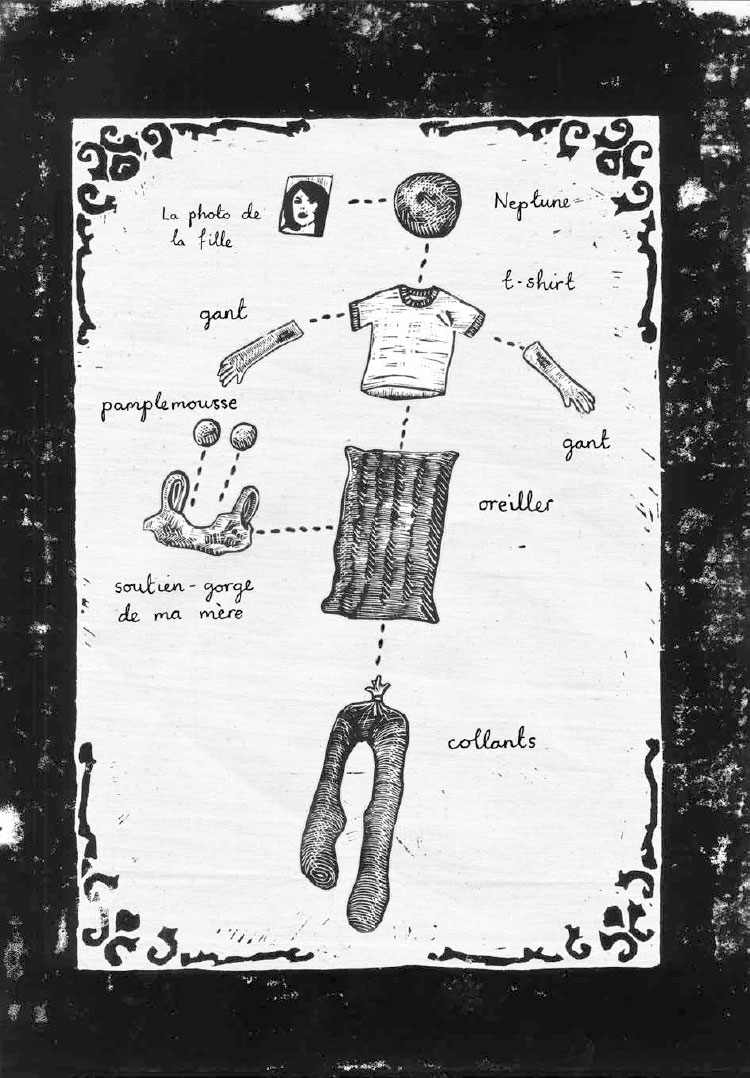 La photo de
la fille
Neptune
t-shirt
gant
gant
pamplemousse
oreiller
soutien-gorge
de ma mère
collants